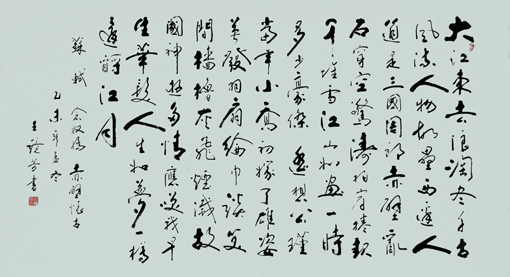 大江東去浪淘盡千古
風流人物故壘西邊人
道是三國周郎赤壁亂
石穿空驚濤拍岸捲起
千堆雪江山如畫一時
多少豪傑遙想公瑾
當年小喬初嫁了雄姿
英發羽扇綸巾談笑
間檣櫓灰飛煙滅故
國神遊多情應笑我早
生華髮人生如夢一樽
還酹江月
蘇軾 念奴嬌 赤壁懷古
乙未年孟冬
王 書